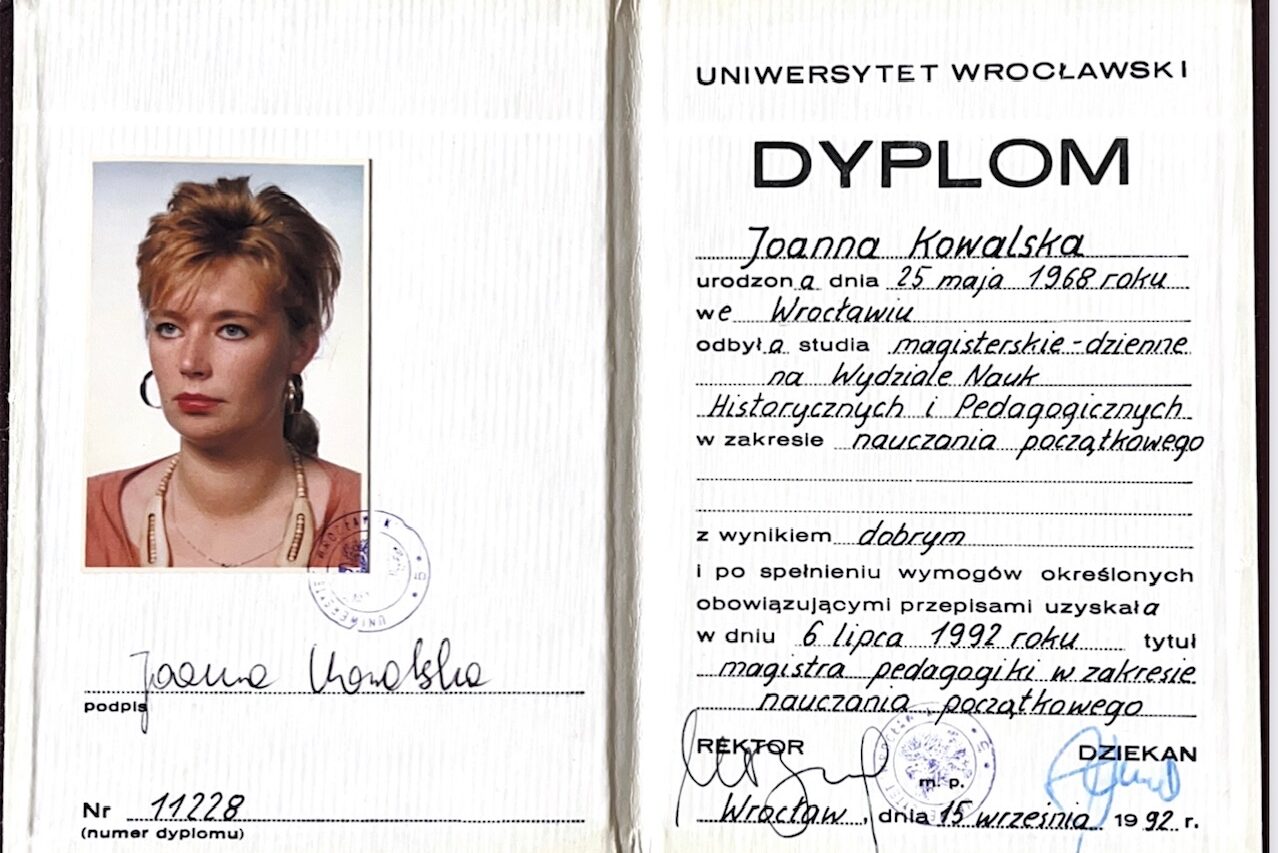 Joanna Kowalska
podpis
Nr 11228
(numer dyplomu)
UNIWERSYTET WROCŁAWSKI
DYPLOM
Joanna Kowalska
urodzona dnia 25 maja 1968 roku
we Wrocławiu
odbyła studia magisterskie-dzienne
na Wydziale Nauk
Historycznych i Pedagogicznych
w zakresie nauczania początkowego
z wynikiem dobrym
i po spełnieniu wymogów określonych
obowiązującymi przepisami uzyskała
w dniu 6 lipca 1992 roku tytuł
magistra pedagogiki w zakresie
nauczania początkowego
REKTOR DZIEKAN
m. p.
Wrocław, dnia 15 września 1992 r.